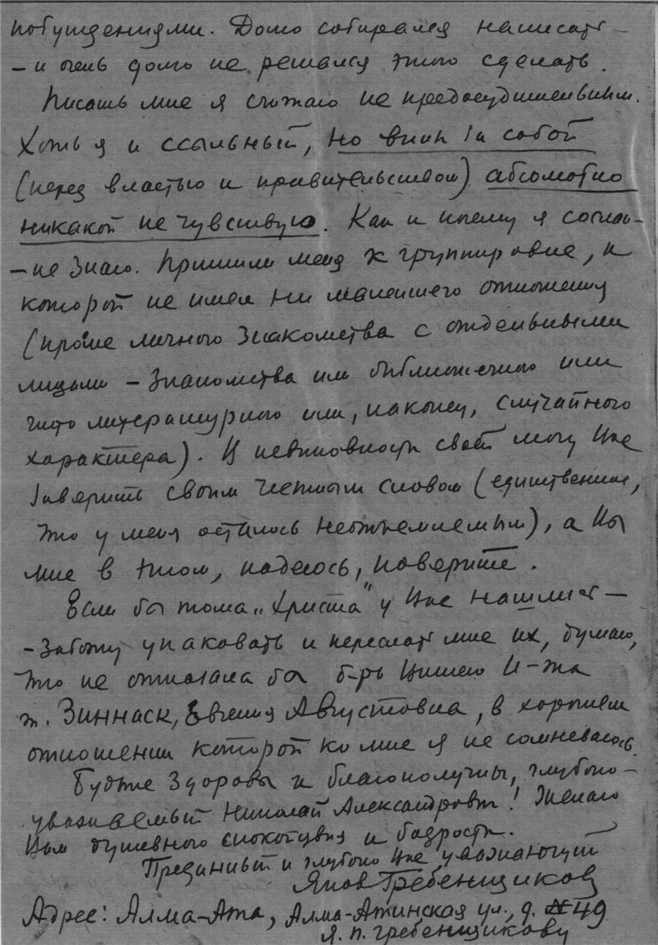 побуждениями. Долго собирался написать —
— и очень долго не решался этого сделать.
Писать мне я считаю не предосудительным.
Хоть я и ссыльный, но вины за собой
(перед властью и правительством) абсолютно
никакой не чувствую. Как и почему я сослан —
— не знаю. Пришили меня к группировке, к
которой не имел ни малейшего отношения
(кроме личного знакомства с отдельными
лицами — знакомства или библиотечного или
чисто литературного или, наконец, случайного
характера). В невиновности своей могу Вас
заверить своим честным словом (единственное,
что у меня осталось неотъемлемым), а Вы
мне в этом, надеюсь, поверите.
Если бы тома „Христа" у Вас нашлись —
— заботу упаковать и переслать мне их, думаю,
что не отказала бы б-рь Вашего И-та
т. Зиннаск, Евгения Августовна, в хорошем
отношении которой ко мне я не сомневаюсь.
Будьте здоровы и благополучны, глубоко-
уважаемый Николай Александрович! Желаю
Вам душевного спокойствия и бодрости.
Преданный и глубоко Вас уважающий
Яков Гребенщиков
Адрес: Алма-Ата, Алма-Атинская ул., д. № 49
Я. П. Гребенщикову